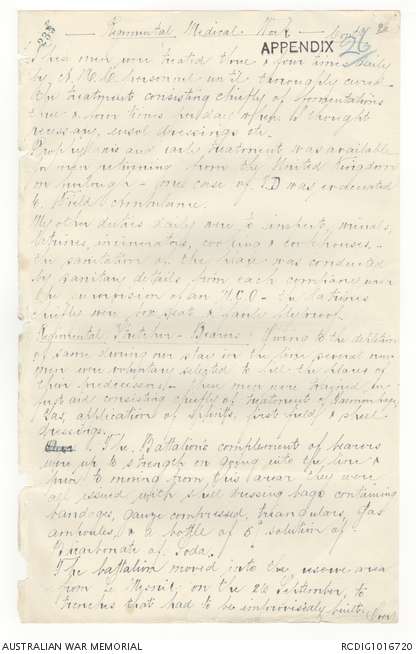 235
Regimental Medical Work Cont'd
APPENDIX 26
These men were treated three & four times daily
by A.M.C. personnel until thoroughly cured.
The treatment consisting chiefly of fomentations
three & four times
necessary, eusol dressings etc.
and early treatment was available
for men returning from the United Kingdom
on furlough - one case of V.D was evacuated
to Field Ambulance.
My other duties daily were to inspect urinals,
latrines, incinerators, cooking & cookhouses.
The sanitation of the was conducted
by sanitary details from each company under
the supervision of an N.C.O. - the latrines
chiefly were box seat &
Regimental Stretcher-Bearers: Owing to the
of same during our stay in the line several new
men were voluntary selected to fill the places of
their predecessors. These men were trained in
first aid consisting chiefly of treatment of haemorrhage,
Gas, application of splints, first field & shell
dressings.
The Battalion's complement of bearers
were up to strength on going into the line &
prior to moving from this area they were
all issued with shell dressing bags containing
bandages, gauze compressed, triangulars, Gas
ampoules, & a bottle of 5% solution of
Bicarbonate of Soda.
The battalion moved into the reserve area
from on the 26 September, to
trenches that had to be improvisedly built
AUSTRALIAN WAR MEMORIAL
RCDIG1016720